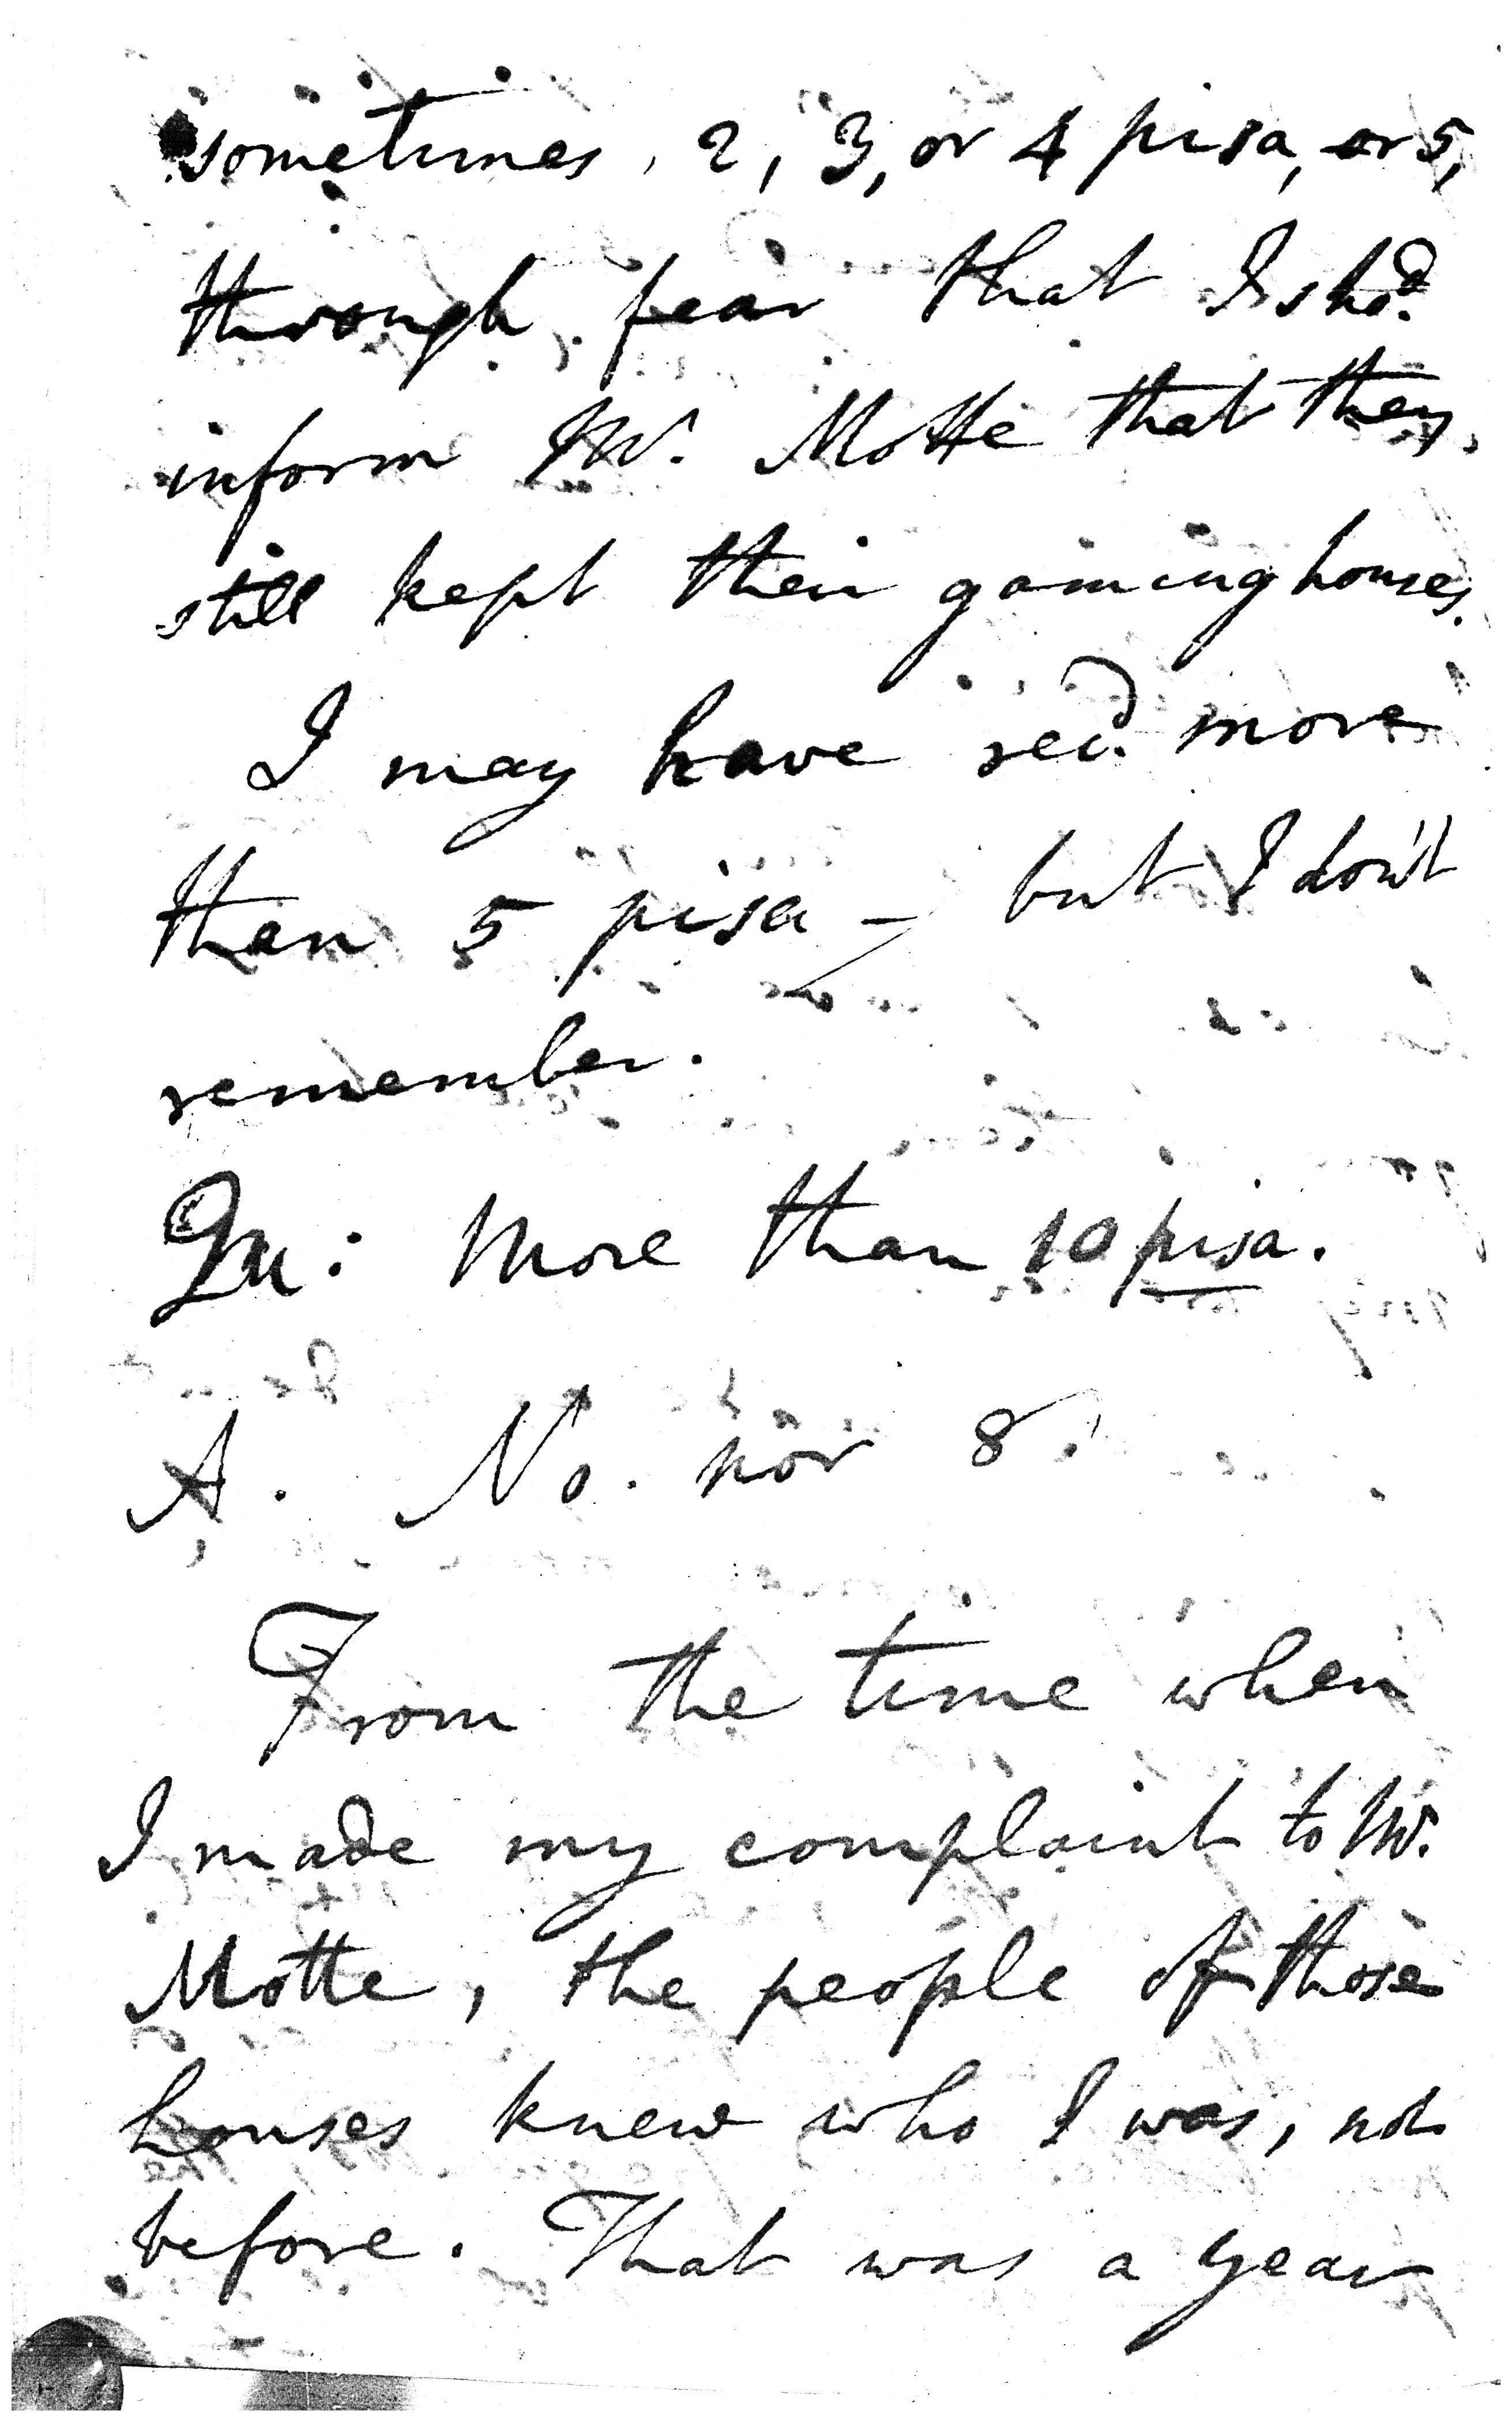 sometimes, 2, 3, or 4 pisa, or 5,
through fear that I shd.
inform Mr. Motte that they
still kept their gaming houses.
I may have recd. more
than 5 pisa – but I don't
remember.
Qu: More than 10 pisa.
A. No. nor 8.
From the time when
I made my complaint to Mr.
Motte, the people of those
houses knew who I was, not
before. That was a year